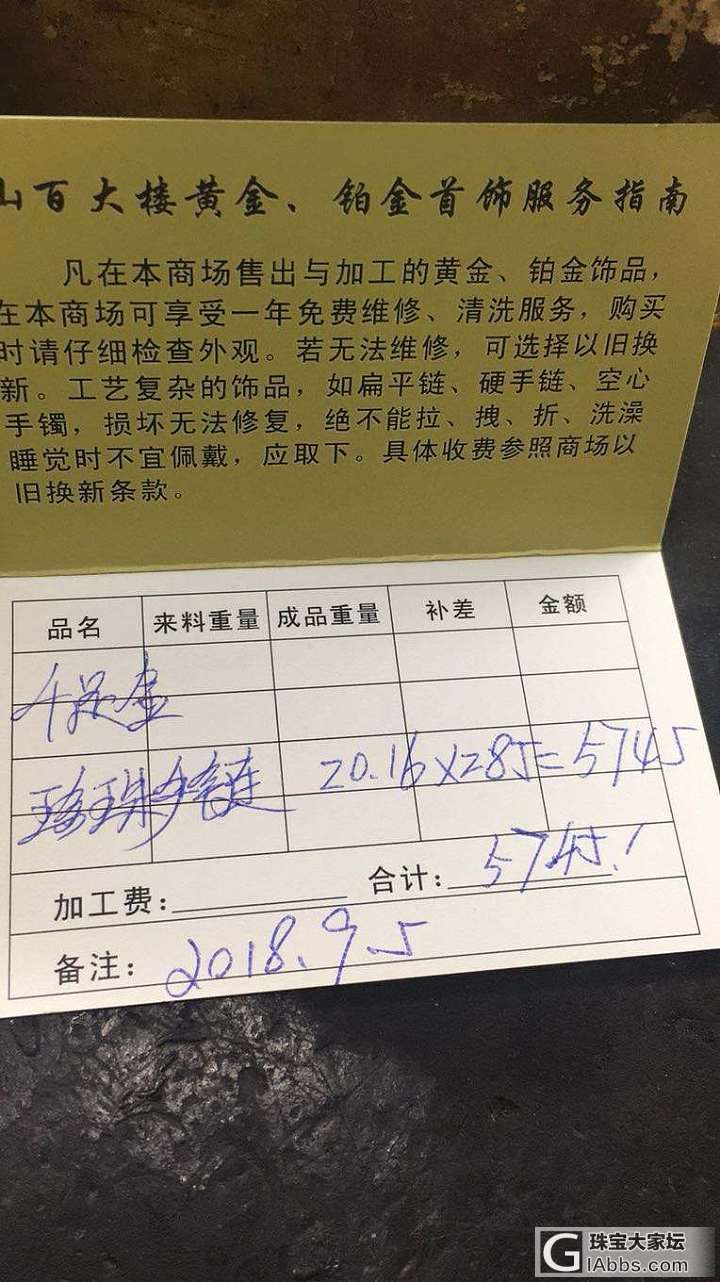 山百大楼黄金、铂金首饰服务指南
凡在本商场售出与加工的黄金、铂金饰品，
在本商场可享受一年免费维修、清洗服务，购买
时请仔细检查外观。若无法维修，可选择以旧换
新。工艺复杂的饰品，如扁平链、硬手链、空心
手镯，损坏无法修复，绝不能拉、拽、折、洗澡
睡觉时不宜佩戴，应取下。具体收费参照商场以
旧换新条款。
品名 来料重量 成品重量 补差 金额
千足金
珍珠手链 20.16×285=5745
加工费： 合计：5745.1
备注：2018.9.5
珠宝大家坛
IAbbs.com